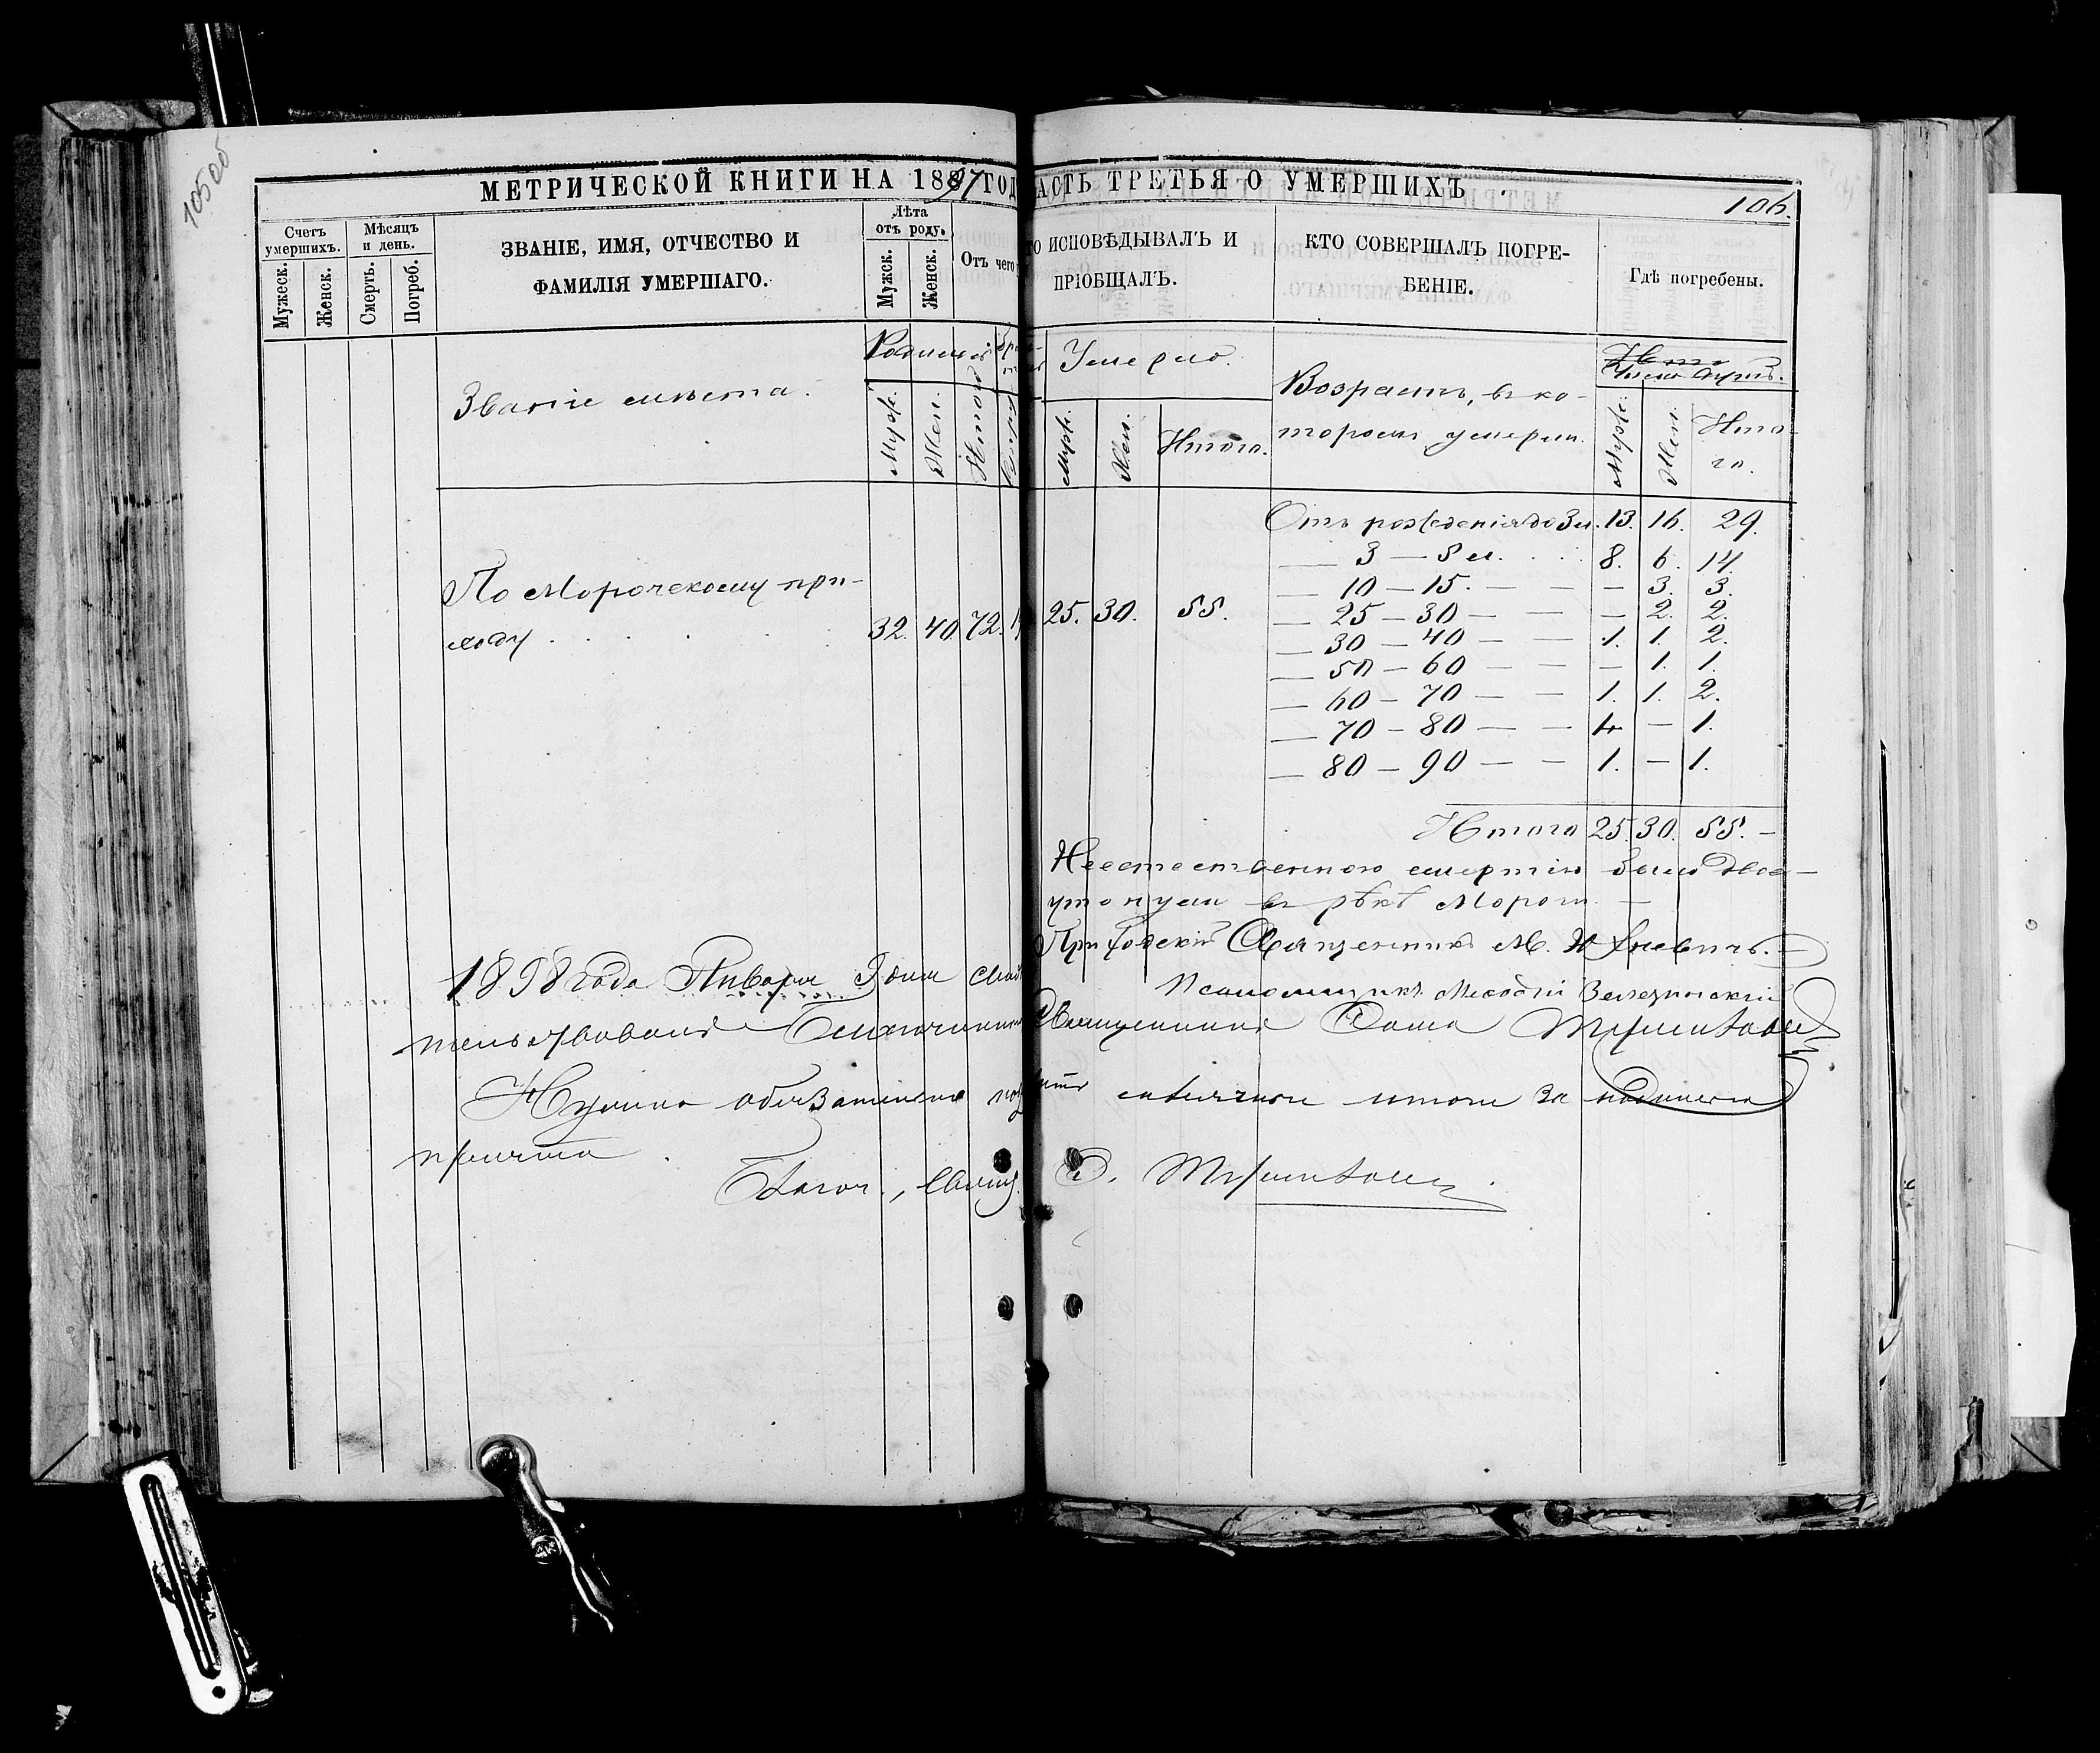 105 об
МЕТРИЧЕСКОЙ КНИГИ НА 1897 ГОД
АСТЬ ТРЕТЬЯ О УМЕРШИХЪ
106.
Счетъ умершихъ.
Мѣсяцъ и день.
ЗВАНІЕ, ИМЯ, ОТЧЕСТВО И
ФАМИЛІЯ УМЕРШАГО.
Лѣта отъ роду.
Отъ чего
Мужеск.
Женск.
Смерть.
Погреб.
Мужск.
Женск.
ТО ИСПОВѢДЫВАЛЪ И
ПРІОБЩАЛЪ.
КТО СОВЕРШАЛЪ ПОГРЕ-
БЕНІЕ.
Гдѣ погребены.
Званіе мѣста.
Родились
Муж.
Жен.
Итого
Умерло.
Муж.
Жен.
Итого.
Возрастъ, въ ко-
торомъ умерли.
Муж.
Жен.
Ито-
го.
По Морочскому при-
ходу 32. 40 72. 25. 30. 55.
Отъ рожденія до 3 л. 13. 16. 29.
— 3 — 5 л. 8. 6. 14.
— 10 — 15. — — — 3. 3.
— 25 — 30 — — — 2. 2.
— 30 — 40 — — 1. 1. 2.
— 50 — 60 — — — 1. 1.
— 60 — 70 — — 1. 1. 2.
— 70 — 80 — — 1. — 1.
— 80 — 90 — — 1. — 1.
Итого 25. 30. 55. —
Неестественною смертію было двое —
утонули въ рѣкѣ Мороч. —
Приходскій Священникъ М.
Псаломщикъ Меѳодій
1898 года Января 9 дня свид
тельствовалъ Благочинный Священникъ
Нужно обязательно итоги за подписью
причта.
Благоч., Свящ.